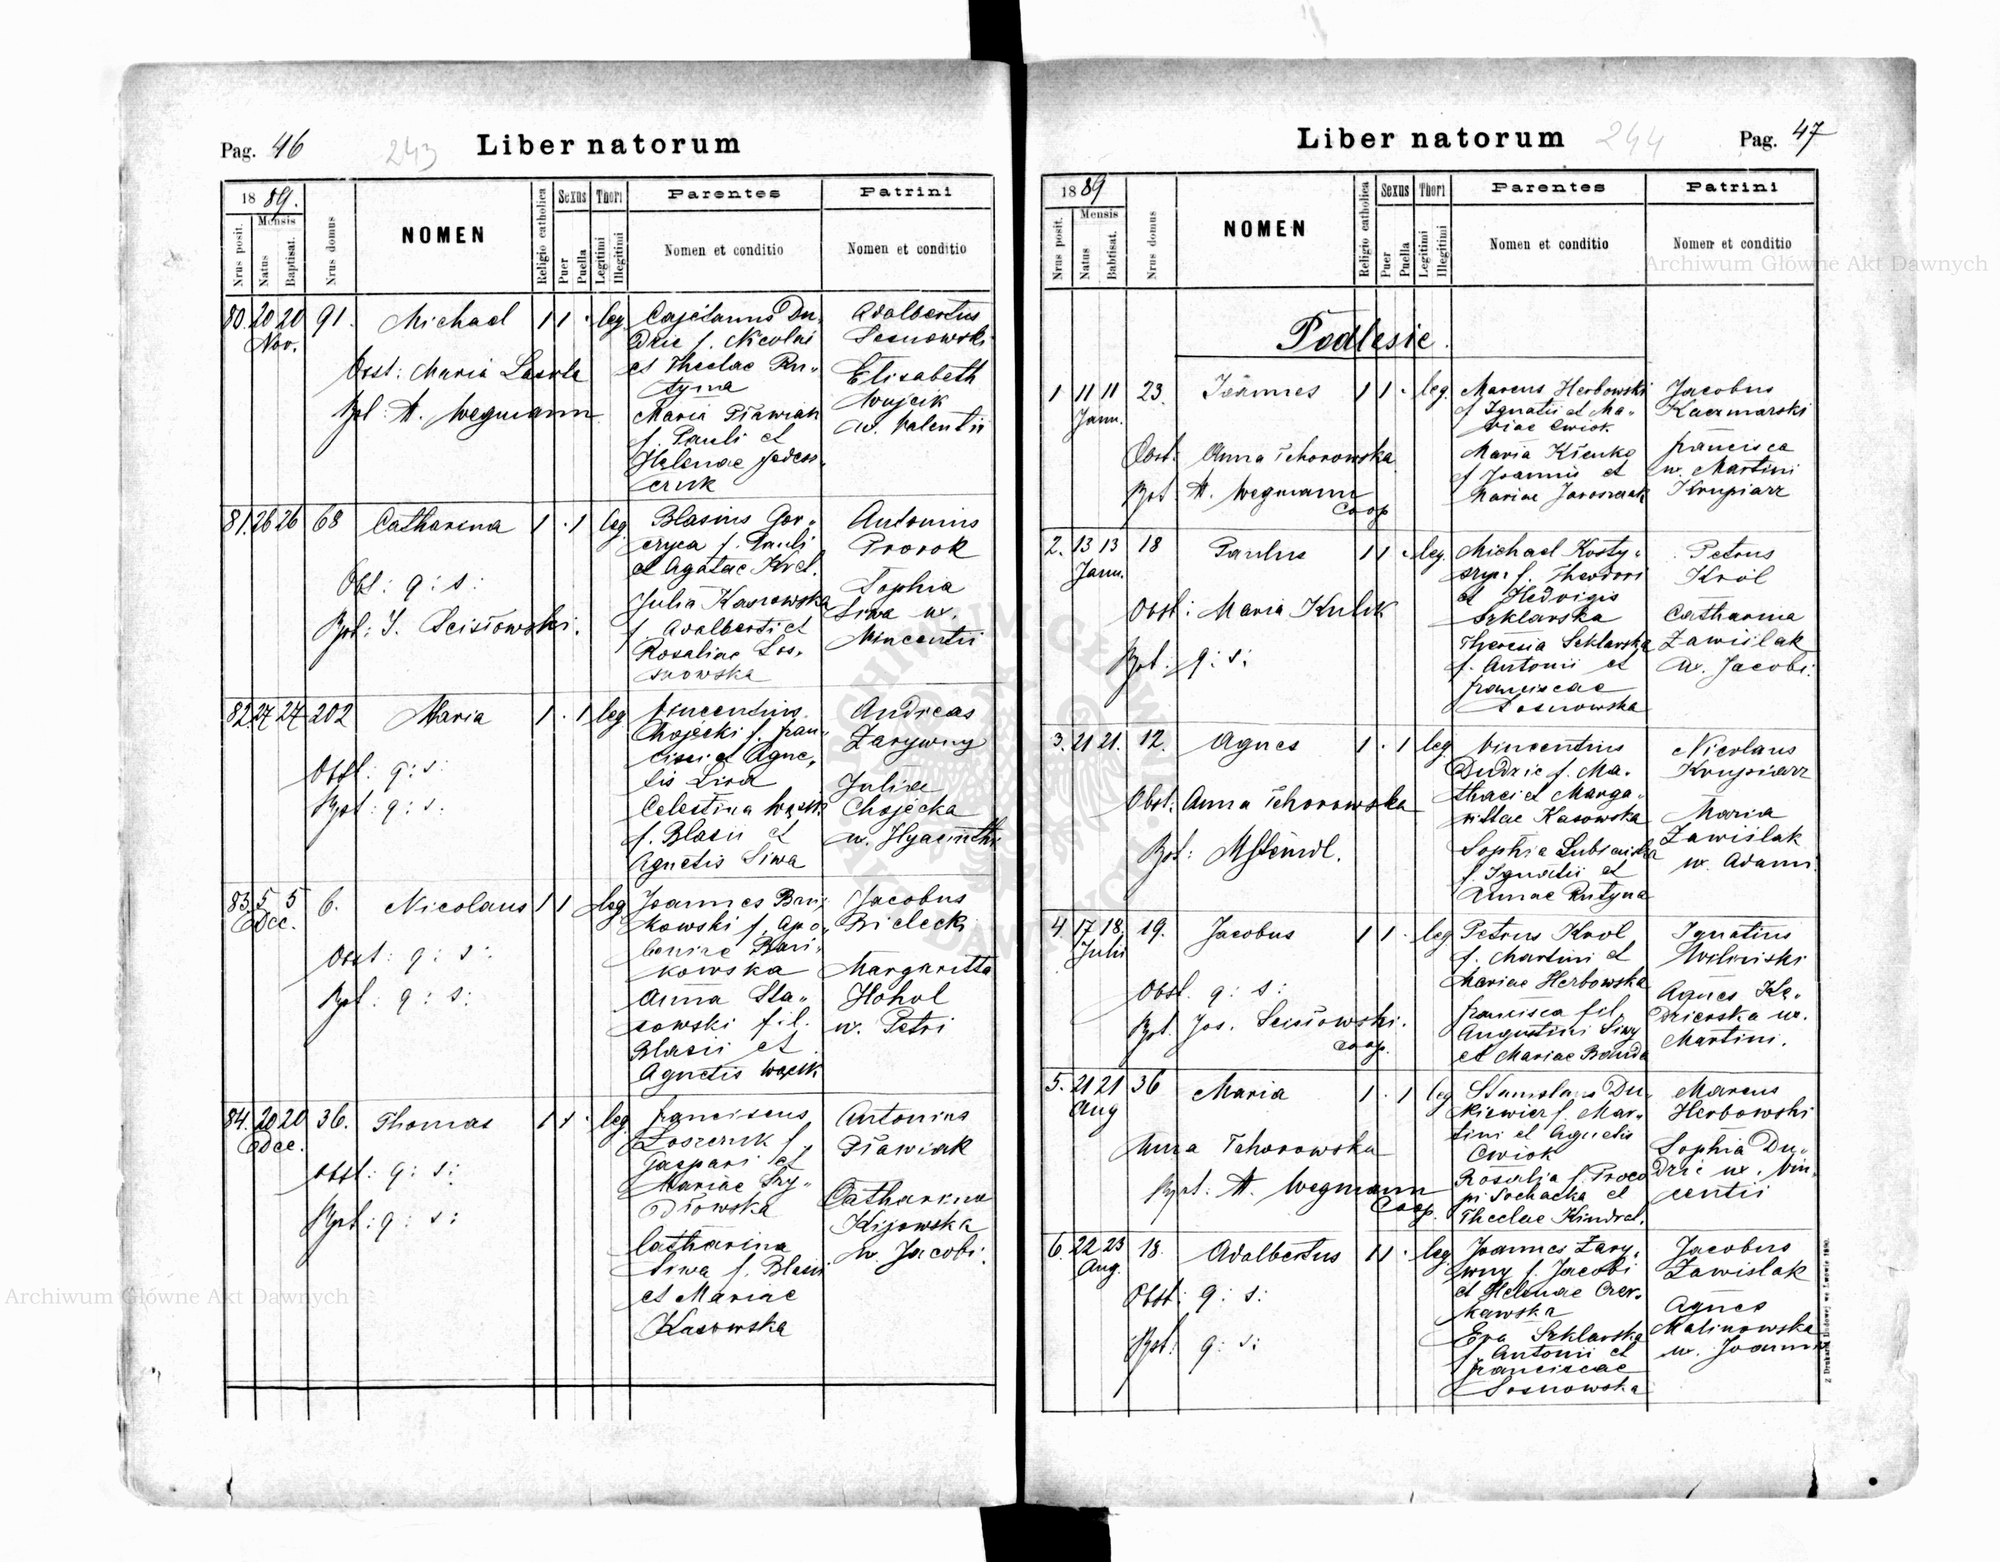 Pag. 46
243
Liber natorum
1889.
Nrus posit.
Mensis
Natus
Baptisat.
Nrus domus
NOMEN
Religio catholica
Sexus
Puer
Puella
Thori
Legitimi
Illegitimi
Parentes
Nomen et conditio
Patrini
Nomen et conditio
80. 20 20 91. Michael 1 1 . leg.
Nov.
Obst: Maria
Bpt: A. Wegmann
Cajetanus Du-
dzic f. Nicolai
et Theclae Ru-
tyna
Maria Pławiak
f. Pauli et
Helenae
Adalbertus
Sosnowski
Elisabeth
Wujcik
ux. Valentii
81. 26 26 68 Catharina 1 . 1 leg.
Obst: q: s:
Bpt: J. Scisłowski.
Blasius Gor-
czyca f. Pauli
et Agatae Krol.
Julia Kasowska
f. Adalberti et
Rosaliae Sos-
nowska
Antonius
Prorok
Sophia
Siwa ux.
Vincentii
82. 27 27 202 Maria 1 . 1 leg
Obst: q: s:
Bpt: q: s:
Vincentius
Chojecki f. Fran-
cisci et Agne-
tis Lira
Celestina Wąsik
f. Blasii et
Agnetis Siwa
Andreas
Zarywny
Julia
Chojecka
ux. Hyacinthi
83. 5 5 6. Nicolaus 1 1 leg
Dec.
Obst: q: s:
Bpt: q: s:
Joannes Bań-
kowski f. Apo-
loniae Bań-
kowska
Anna Sta-
sowski fil.
Blasii et
Agnetis Wąsik
Jacobus
Bielecki
Margaritta
Hohol
ux. Petri
84. 20 20 36. Thomas 1 1 . leg.
Dec.
Obst: q: s:
Bpt: q: s:
Franciscus
f.
Gaspari et
Mariae Szy-
dłowska
Catharina
Siwa f. Blasii
et Mariae
Kasowska
Antonius
Pławiak
Catharina
Kijowska
ux. Jacobi.
Liber natorum
244
Pag. 47
1889
Nrus posit.
Mensis
Natus
Babtisat.
Nrus domus
NOMEN
Religio catholica
Sexus
Puer
Puella
Thori
Legitimi
Illegitimi
Parentes
Nomen et conditio
Patrini
Nomen et conditio
Podlesie.
1 11 11 23. Joannes 1 1 . leg.
Jann.
Obst: Anna Tchorowska
Bpt: A. Wegmann
Coop
Marcus Herbowski
f Ignatii et Ma-
riae Cwiok
Maria Kienko
f Joannis et
Mariae Jaroszczak
Jacobus
Kaczmarski
Francisca
ux. Martini
Krupiarz
2. 13 13 18 Paulus 1 1 . leg.
Jann.
Obst: Maria Kulik
Bpt: q: s:
Michael Kosty-
szyn f. Theodori
et Hedvigis
Szklarska
Theresia Szklarska
f. Antonii et
Franciscae
Sosnowska
Petrus
Król
Catharina
Zawiślak
ux. Jacobi.
3. 21 21. 12. Agnes 1 . 1 leg
Obst: Anna Tchorowska
Bpt:
Vincentius
Dudzic f. Ma-
thaei et Marga-
rittae Kasowska
Sophia
f. Ignatii et
Annae Rutyna
Nicolaus
Krupiarz
Maria
Zawiślak
ux. Adami
4. 17 18. 19. Jacobus 1 1 . leg
Julii
Obst. q: s:
Bpt. Jos. Scisłowski.
Coop.
Petrus Krol
f. Martini et
Mariae Herbowska
Francisca fil.
Augustini Siwy
et Mariae Banda
Ignatius
Wiliński
Agnes Kę-
dzierska ux.
Martini.
5. 21 21 36 Maria 1 . 1 leg
Aug
Anna Tchorowska
Bpt: A. Wegmann
Coop.
Stanislaus Du-
kiewicz f. Mar-
tini et Agnetis
Cwiok
Rosalia f. Proco-
pi Sochacka et
Theclae Kindrat.
Marcus
Herbowski
Sophia Du-
dzic ux. Vin-
centii
6. 22 23 18. Adalbertus 1 1 . leg.
Aug.
Obst: q: s:
Bpt: q: s:
Joannes Zary-
wny f. Jacobi
et Helenae Czer-
kawska
Eva Szklarska
f Antonii et
Franciscae
Sosnowska
Jacobus
Zawislak
Agnes
Malinowska
ux. Joannis
Z Drukarni Ludowej we Lwowie 1890.
Archiwum Główne Akt Dawnych
Archiwum Główne Akt Dawnych